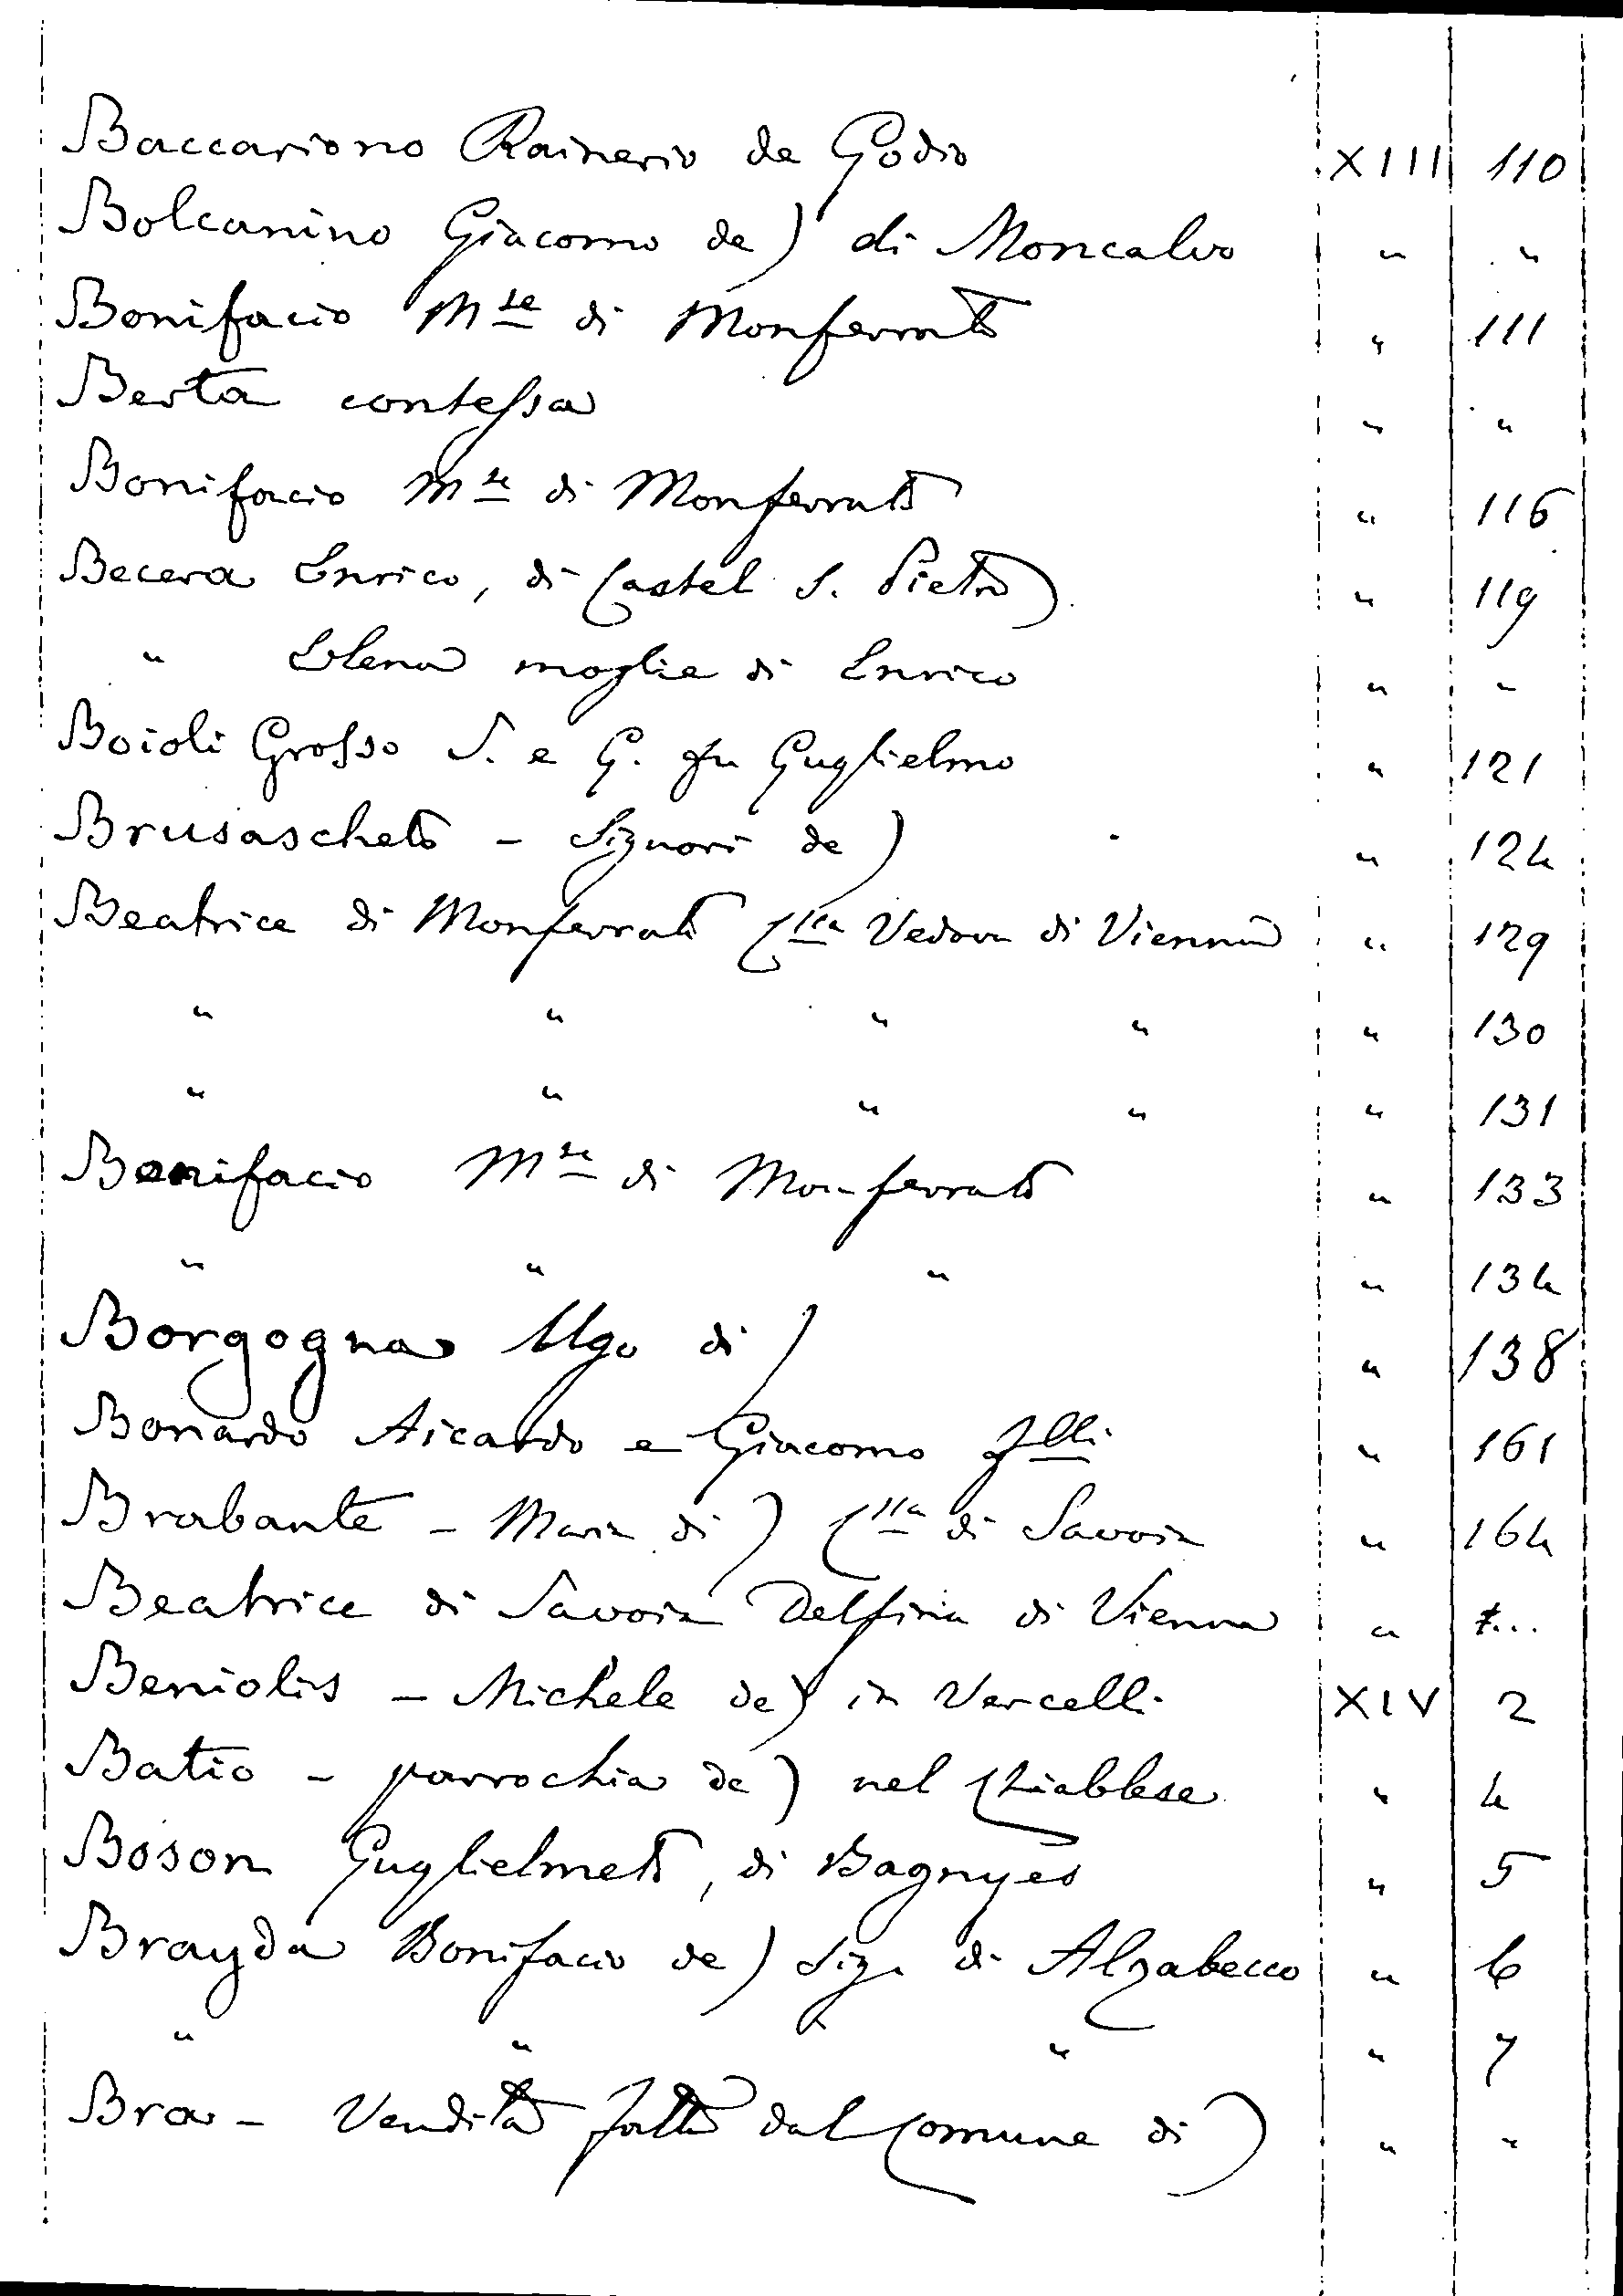 Baccariono Rainerio de Godio XIII 110
Bolcanino Giacomo de) di Moncalvo " "
Bonifacio Mse di Monferrato " 111
Berta contessa " "
Bonifacio Mse di Monferrato " 116
Becera Enrico, di Castel S. Pietro) " 119
" Elena moglie di Enrico " "
Boioli Grosso S. e G. fu Guglielmo " 121
Brusascheto - Signori de) " 124
Beatrice di Monferrato Cssa Vedova di Vienna " 129
" " " " " 130
" " " " " 131
Bonifacio Mse di Monferrato " 133
" " " " 134
Borgogna Ugo di) " 138
Bonardo Aicardo e Giacomo flli " 161
Brabante - Maria di) Cssa di Savoia " 164
Beatrice di Savoia Delfina di Vienna "
Beniolis - Michele de) in Vercelli XIV 2
Batio - parrochia de) nel Chiablese " 4
Boson Guglielmeto, di Bagnyes " 5
Brayda Bonifacio de) Sig. di Alzabecco " 6
" " " " 7
Bra - Vendita fatta dal Comune di) " "